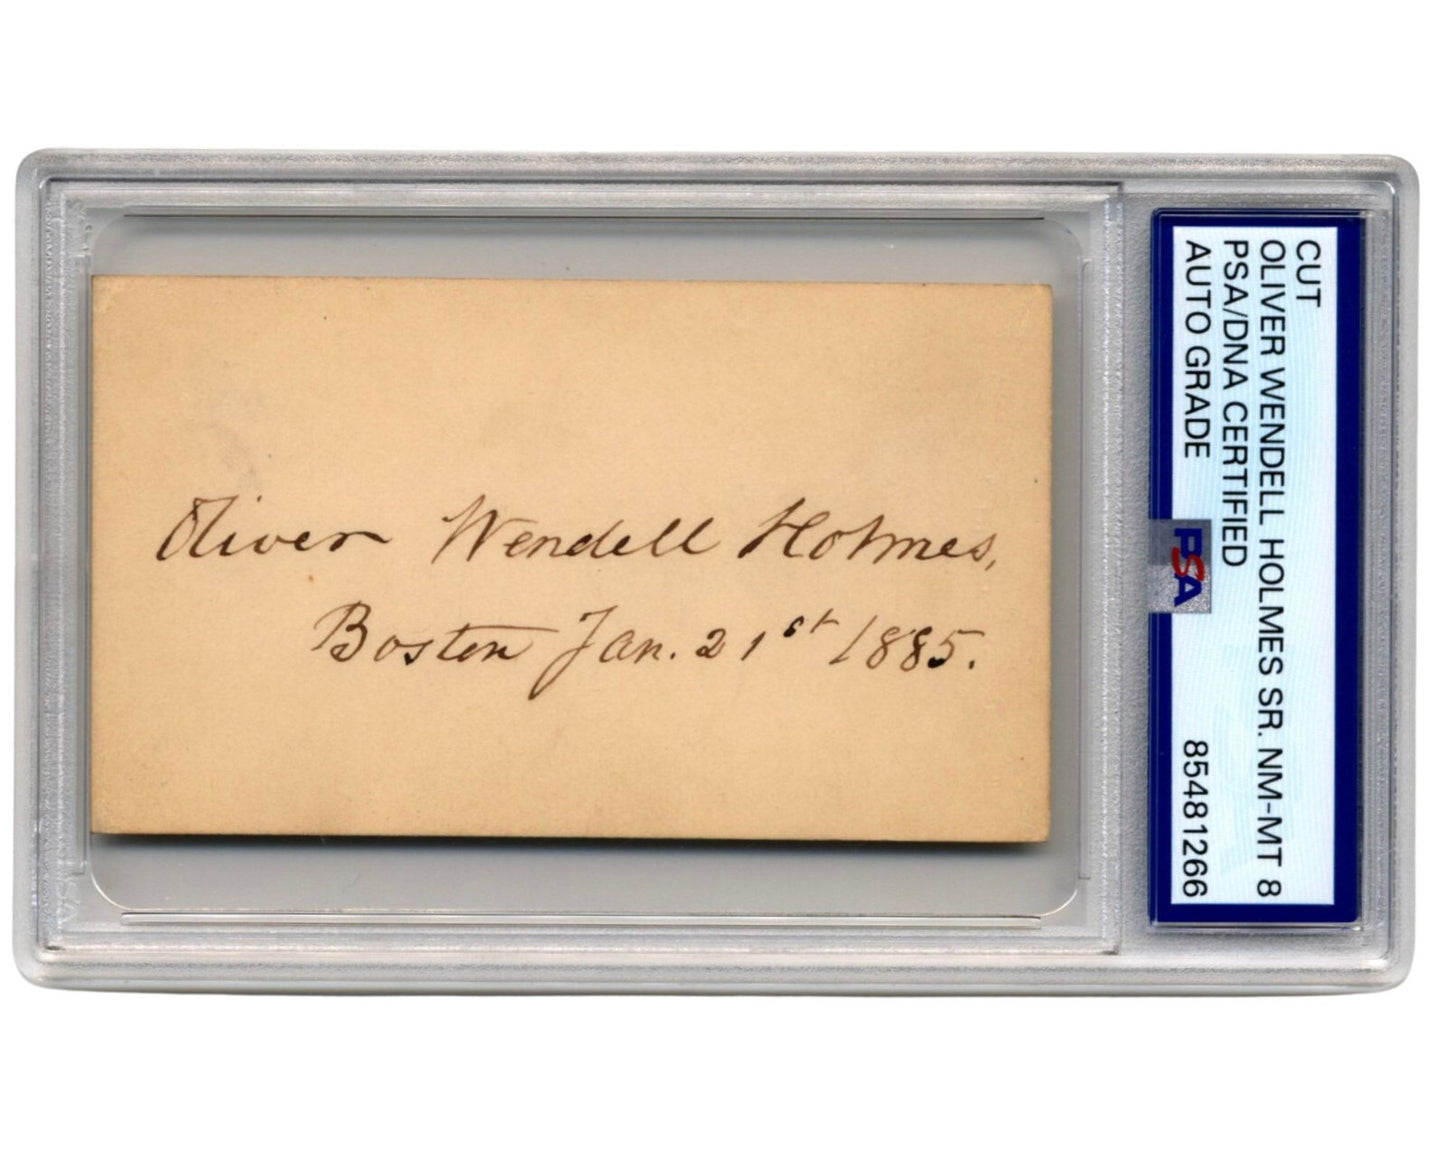 Oliver Wendell Holmes,
Boston Jan. 21st 1885.
CUT
OLIVER WENDELL HOLMES SR. NM-MT 8
PSA/DNA CERTIFIED
AUTO GRADE 85481266
PSA